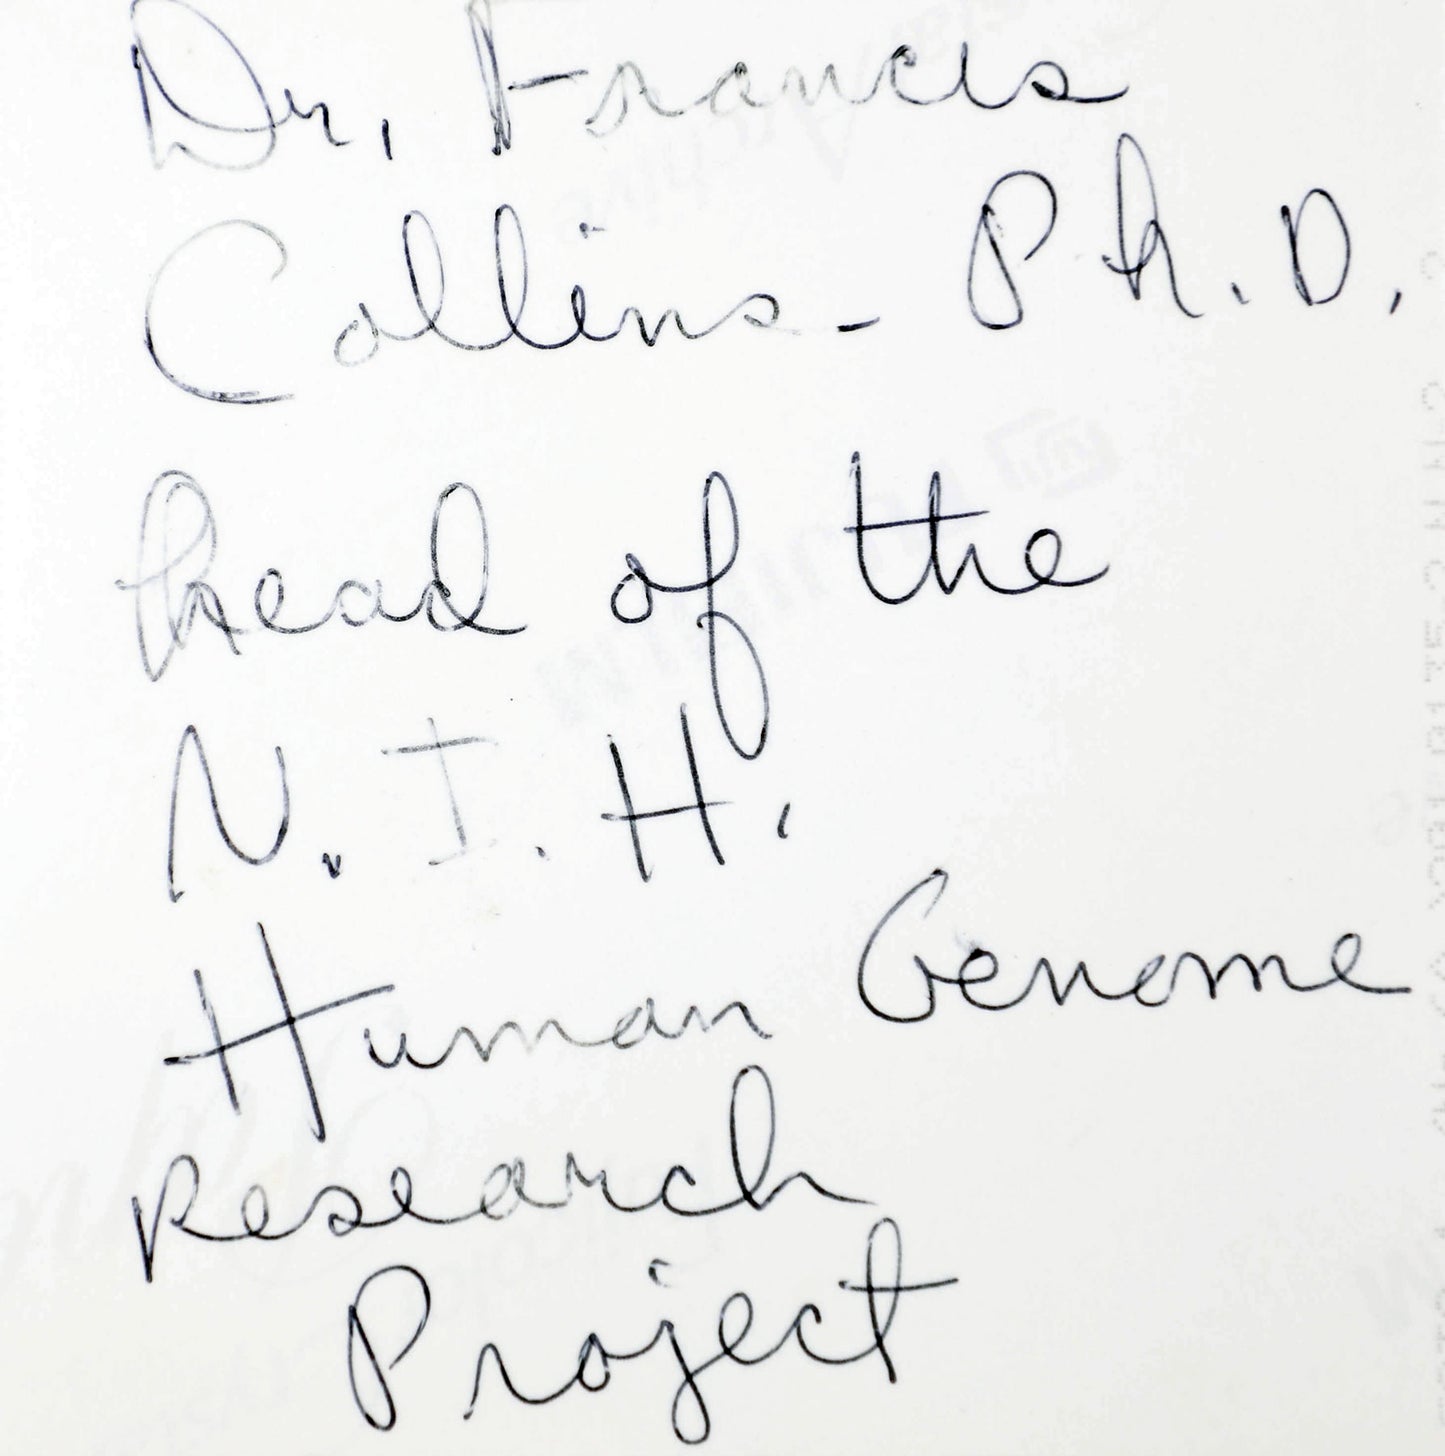 Dr. Francis
Collins - Ph.D.
head of the
N.I.H.
Human Genome
Research
Project